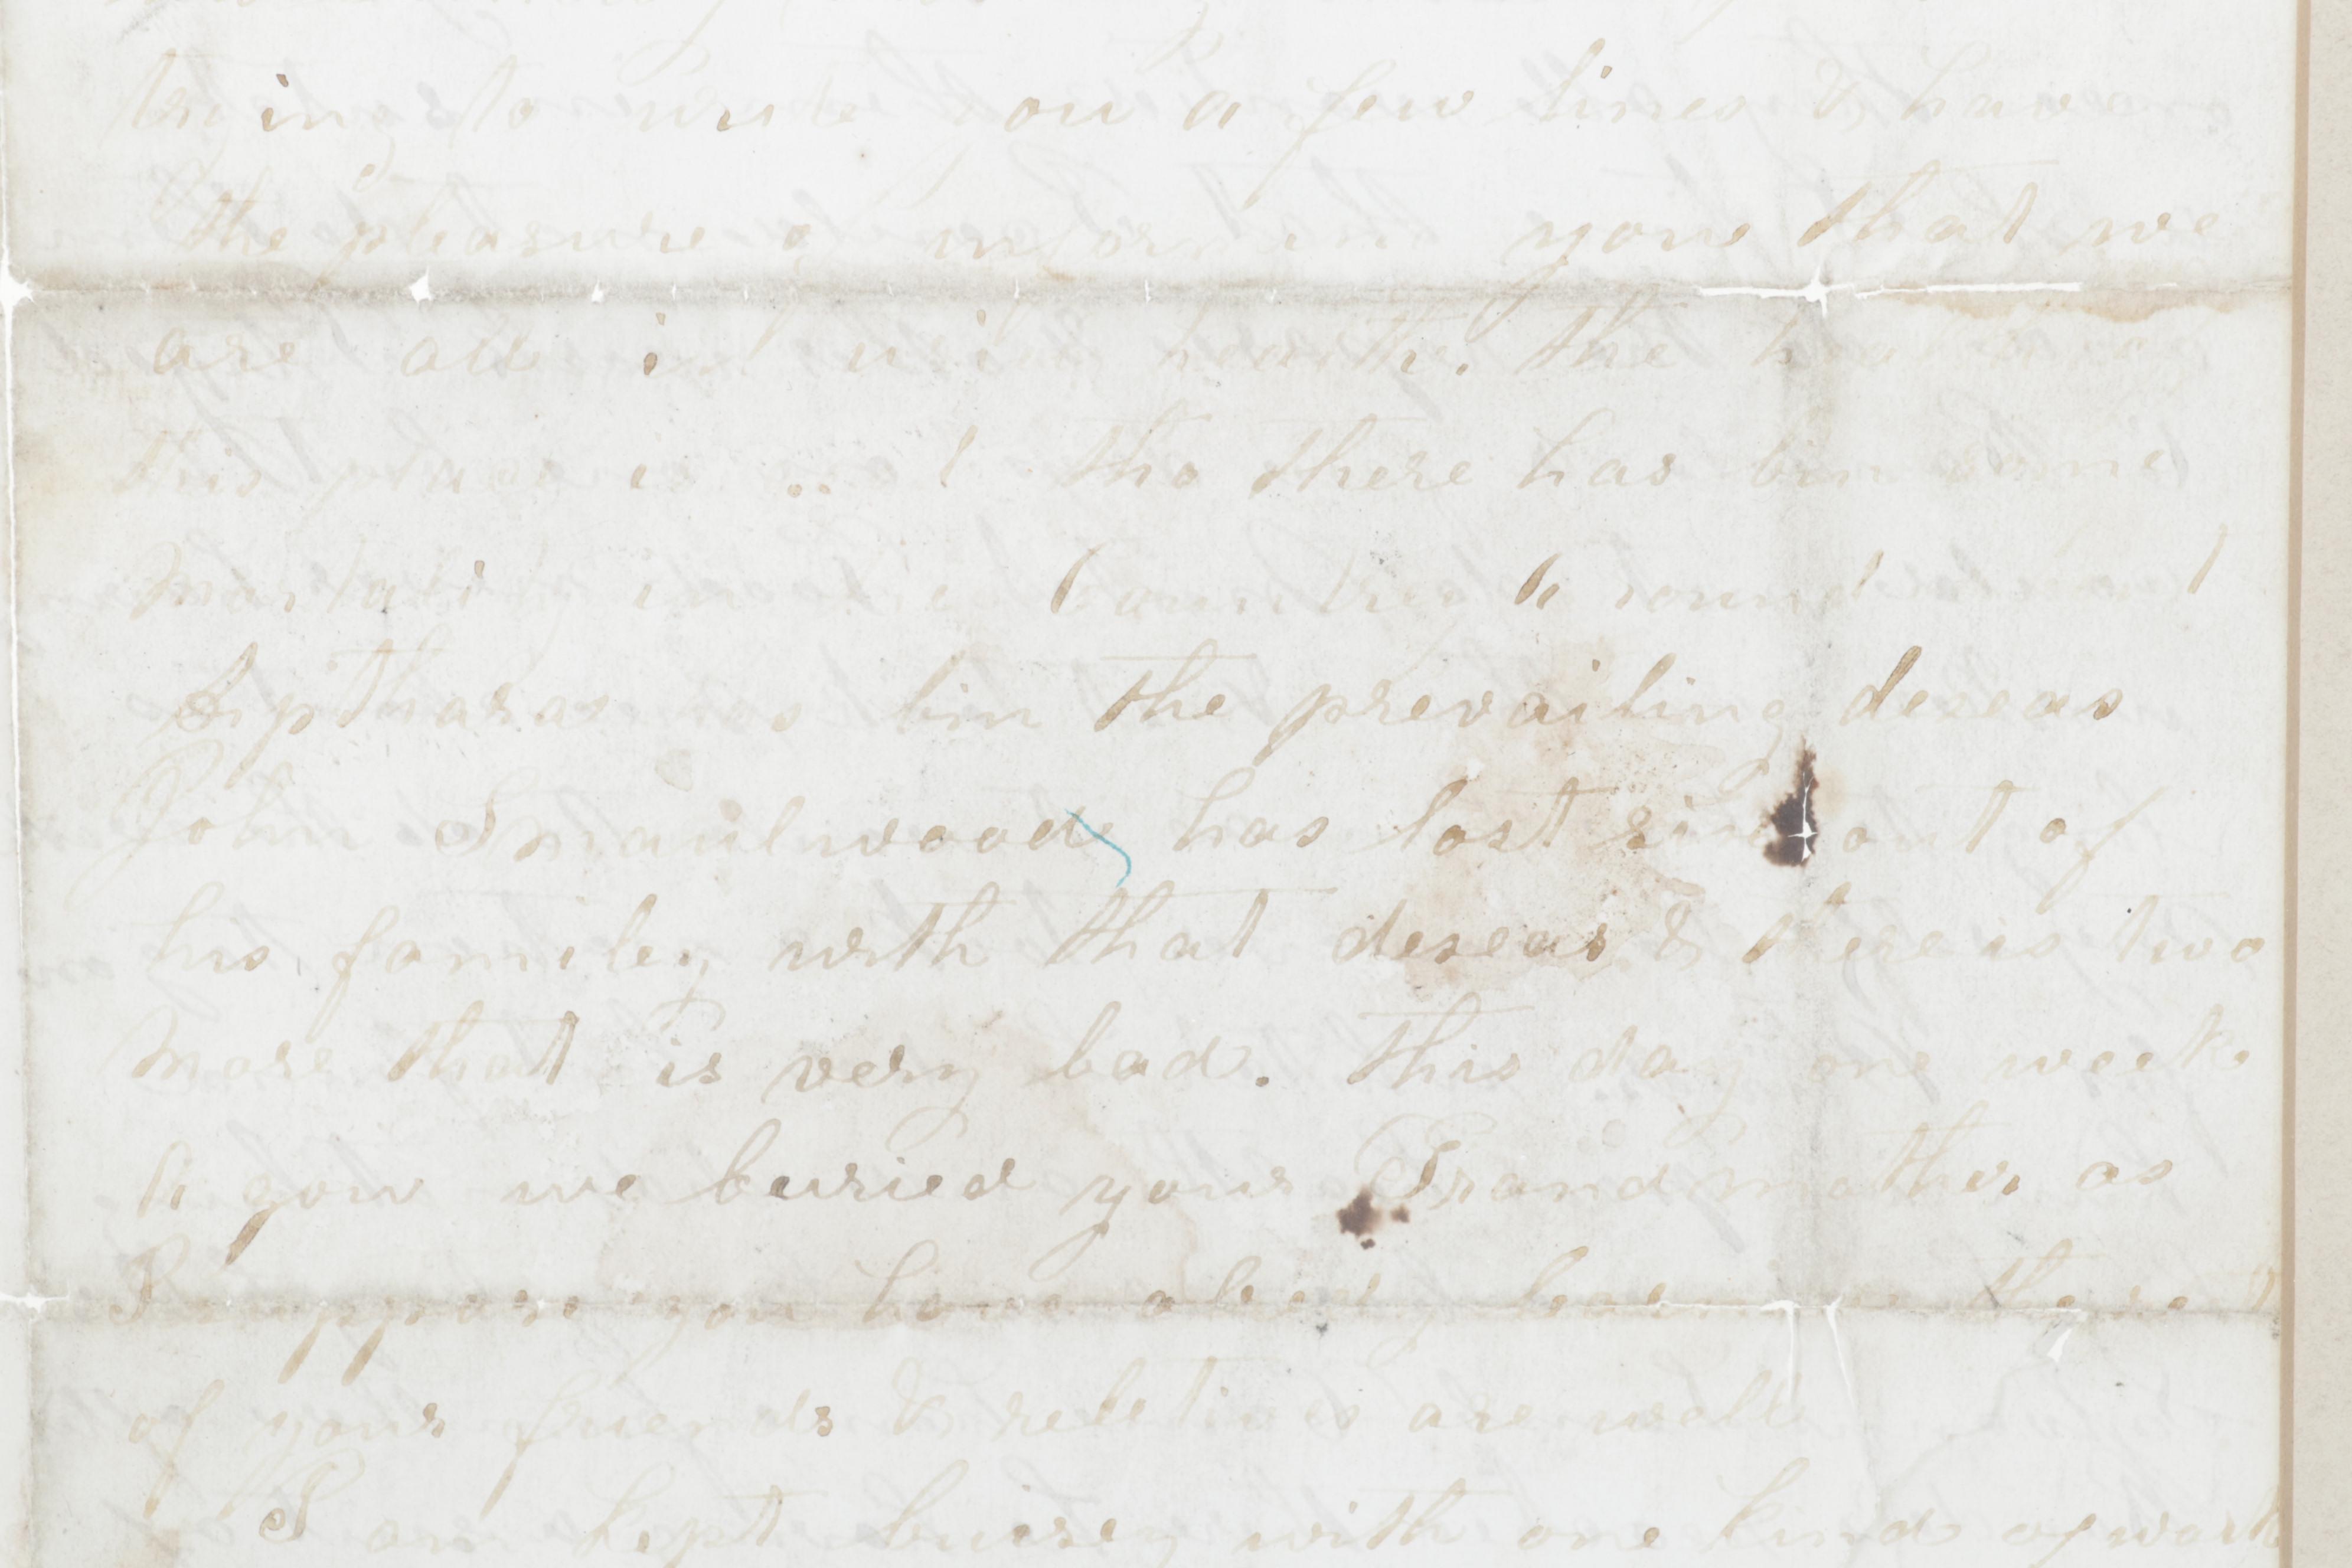 trying to write you a few lines & have
the pleasure of informing you that we
are all in health. the
this place is tho there has bin some
Mortality in the Countrey a round
Diptharas has bin the prevailing deseas
John Smaulwood has lost out of
his familey with that deseas & there is two
more that is very bad. This day one week
a gow we buried your Grandmother as
I suppose you have alredy
of your friends & reletives are well
I am kept buisey with one kind of work